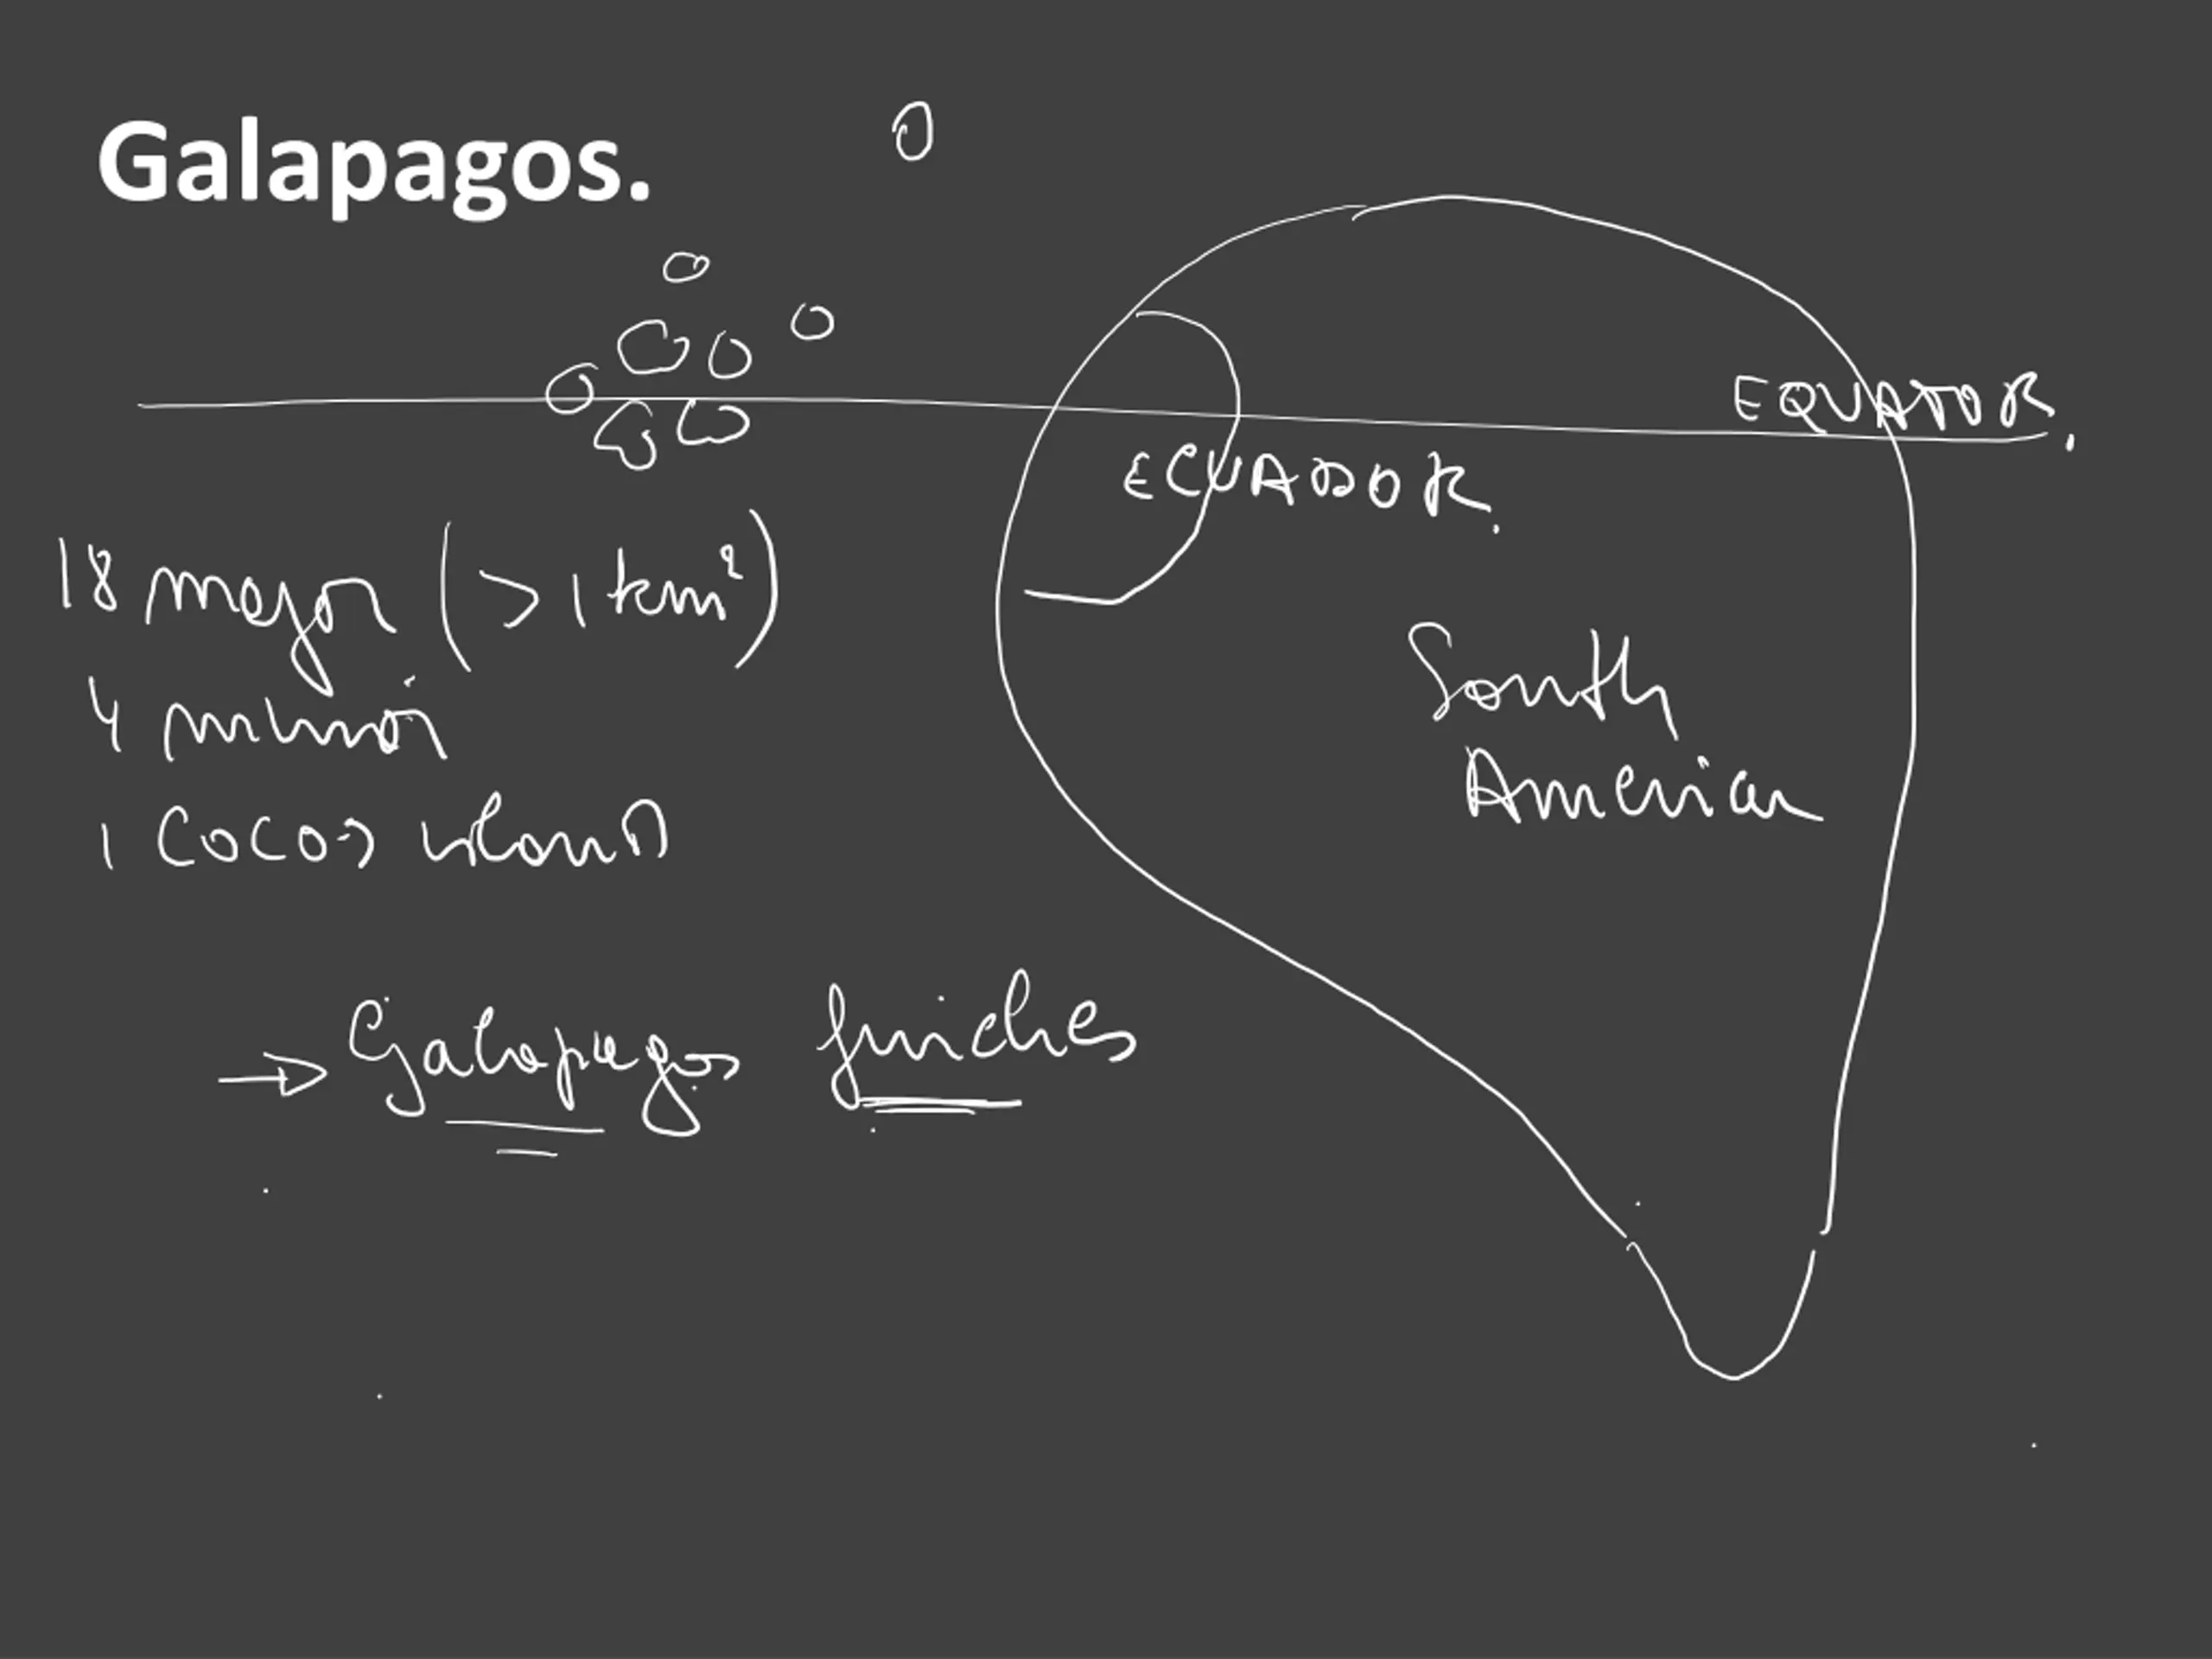 Galapagos.
EQUATOR.
ECUADOR.
18 major (>1 km²)
4 million
1 Cocos island
South
American
→ Galapagos finches